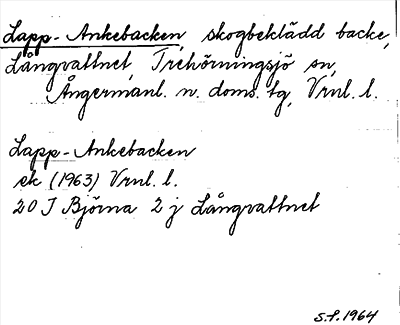 Lapp-Ankebacken, skogbeklädd backe,
Långvattnet, Trehörningsjö sn,
Ångermanl. n. doms. tg, Vrnl. l.
Lapp-Ankebacken
ek (1963) Vrnl. l.
20 I Björna 2 j Långvattnet
S.S. 1964